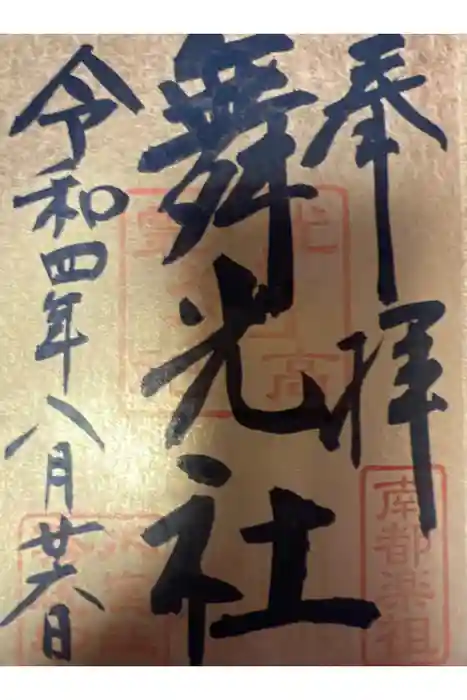 奉拝
南都楽祖
舞光社
令和四年八月廿六日